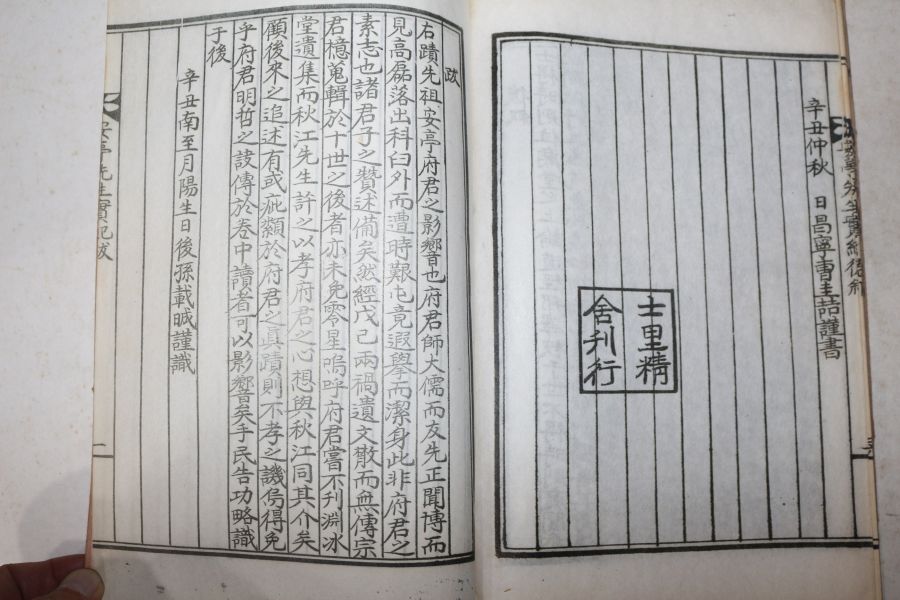 辛丑仲秋 日昌寧曺圭喆謹書
士里精
舍刊行
跋
右蹟先祖安亭府君之影響也府君師大儒而友先正聞博而
見高磊落出科臼外而遭時艱屯竟遐擧而潔身此非府君之
素志也諸君子之贊述備矣然經戊己兩禍遺文散而無傳宗
君檍蒐輯於十世之後者亦未免零星嗚呼府君嘗不刊淵冰
堂遺集而秋江先生許之以孝府君之心想與秋江同其介矣
顧後來之追述有或疵纇於府君之眞蹟則不孝之譏烏得免
乎府君明哲之諉傳於卷中讀者可以影響矣手民告功略識
于後
辛丑南至月陽生日後孫載\
謹識
安亭先生實紀跋
二